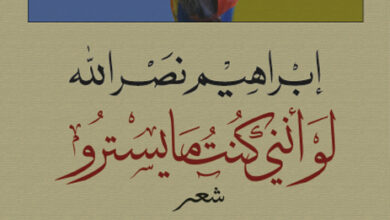 إبْراهِيْم نَصْر الله
لَوْ أنّني كُنْتُ مَايسْترو
شعر